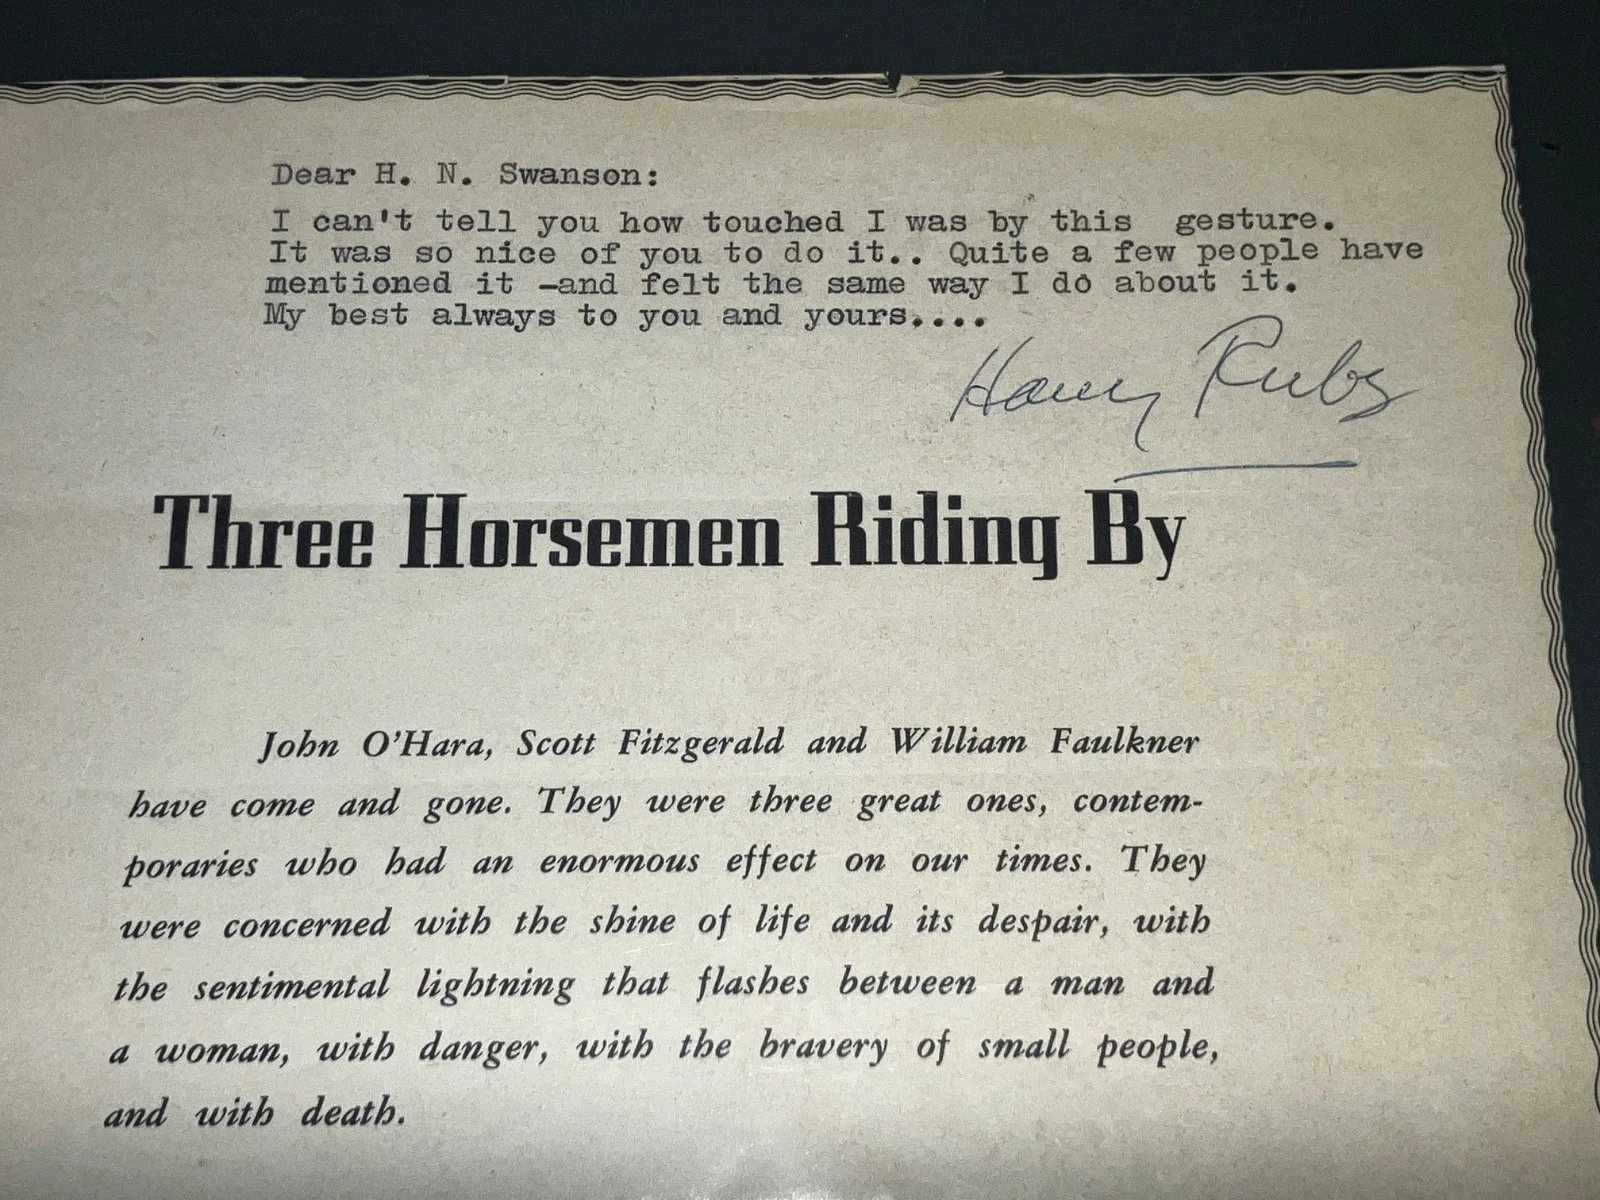 Dear H. N. Swanson:
I can't tell you how touched I was by this gesture.
It was so nice of you to do it.. Quite a few people have
mentioned it -and felt the same way I do about it.
My best always to you and yours....
Harry Ruby
Three Horsemen Riding By
John O'Hara, Scott Fitzgerald and William Faulkner
have come and gone. They were three great ones, contem-
poraries who had an enormous effect on our times. They
were concerned with the shine of life and its despair, with
the sentimental lightning that flashes between a man and
a woman, with danger, with the bravery of small people,
and with death.